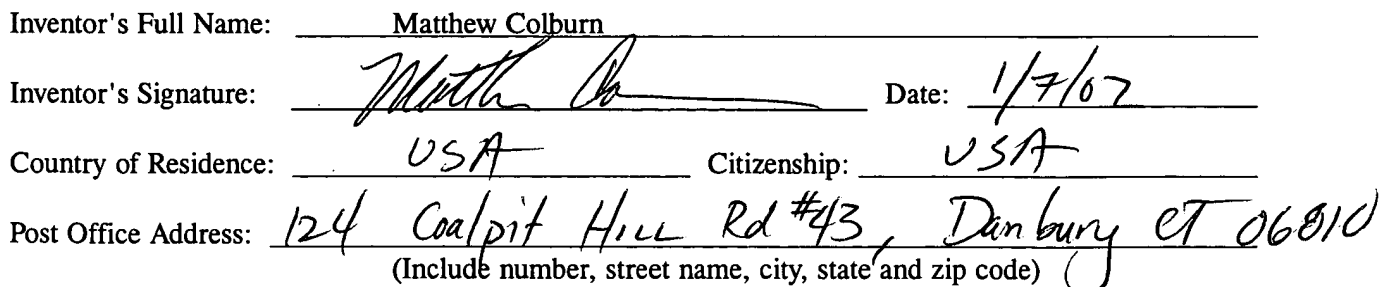 Inventor's Full Name: Matthew Colburn
Inventor's Signature: Matth Co Date: 1/7/07
Country of Residence: USA Citizenship: USA
Post Office Address: 124 Coalpit Hill Rd #43, Danbury CT 06810
(Include number, street name, city, state and zip code)